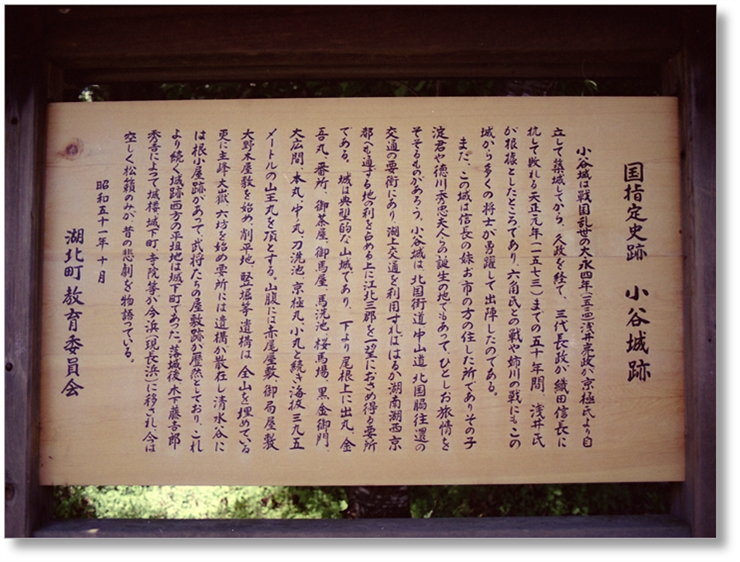 国指定史跡 小谷城跡
小谷城は戦国乱世の大永四年(一五二四)浅井亮政が京極氏より自
立して築城してから、久政を経て、三代長政が織田信長に
抗して敗れる天正元年(一五七三)までの五十年間、浅井氏
が根據としたところであり、六角氏との戦や姉川の戦にもこの
城から多くの将士が勇躍して出陣したのである。
また、この城は信長の妹お市の方の住した所でありその子
淀君や徳川秀忠夫人らの誕生の地でもあって、ひとしお旅情を
そそるものがあろう。小谷城は、北国街道、中山道、北国脇往還の
交通の要衝にあり、湖上交通を利用すればはるか湖南湖西京
都へも通ずる地の利を占める上に江北三郡を一望におさめ得る要所
である。城は典型的な山城であり、下より尾根上に出丸、金
吾丸、番所、御茶屋、御馬屋、馬洗池、桜馬場、黒金御門、
大広間、本丸、中ノ丸、刀洗池、京極丸、小丸と続き海抜三九五
メートルの山王丸を頂とする。山腹には赤尾屋敷、御局屋敷
大野木屋敷を始め、削平地、竪堀等遺構は、全山を埋めている
更に主峰大嶽、六坊を始め要所には遺構が散在し清水谷に
は根小屋跡があって、武将たちの屋敷跡が歴然としており、これ
より続く城跡西方の平坦地は城下町であった。落城後木下藤吉郎
秀吉によって城楼、城下町、寺院等が今浜(現長浜)に移され、今は
空しく松籟のみが、昔の悲劇を物語っている。
昭和五十一年十月
湖北町教育委員会